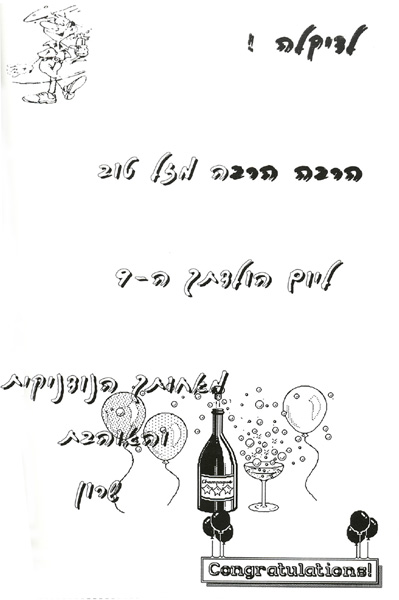 לדיקלה !
הרבה הרבה מזל טוב
ליום הולדתך ה-9
מאחותך הנודניקית
והאוהבת
שרון
Champagne
Congratulations!